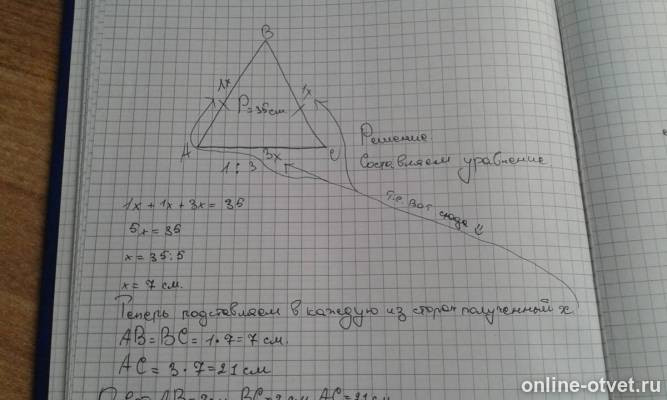 B
1x
1x
P=35см
A
3x
C
1 : 3
Решение.
Составляем уравнение
т.е. вот сюда
1x + 1x + 3x = 35
5x = 35
x = 35:5
x = 7 см.
Теперь подставляем в каждую из сторон полученный x
AB = BC = 1·7 = 7 см.
AC = 3·7 = 21 см
AB=7см BC=7см AC=21см
online-otvet.ru